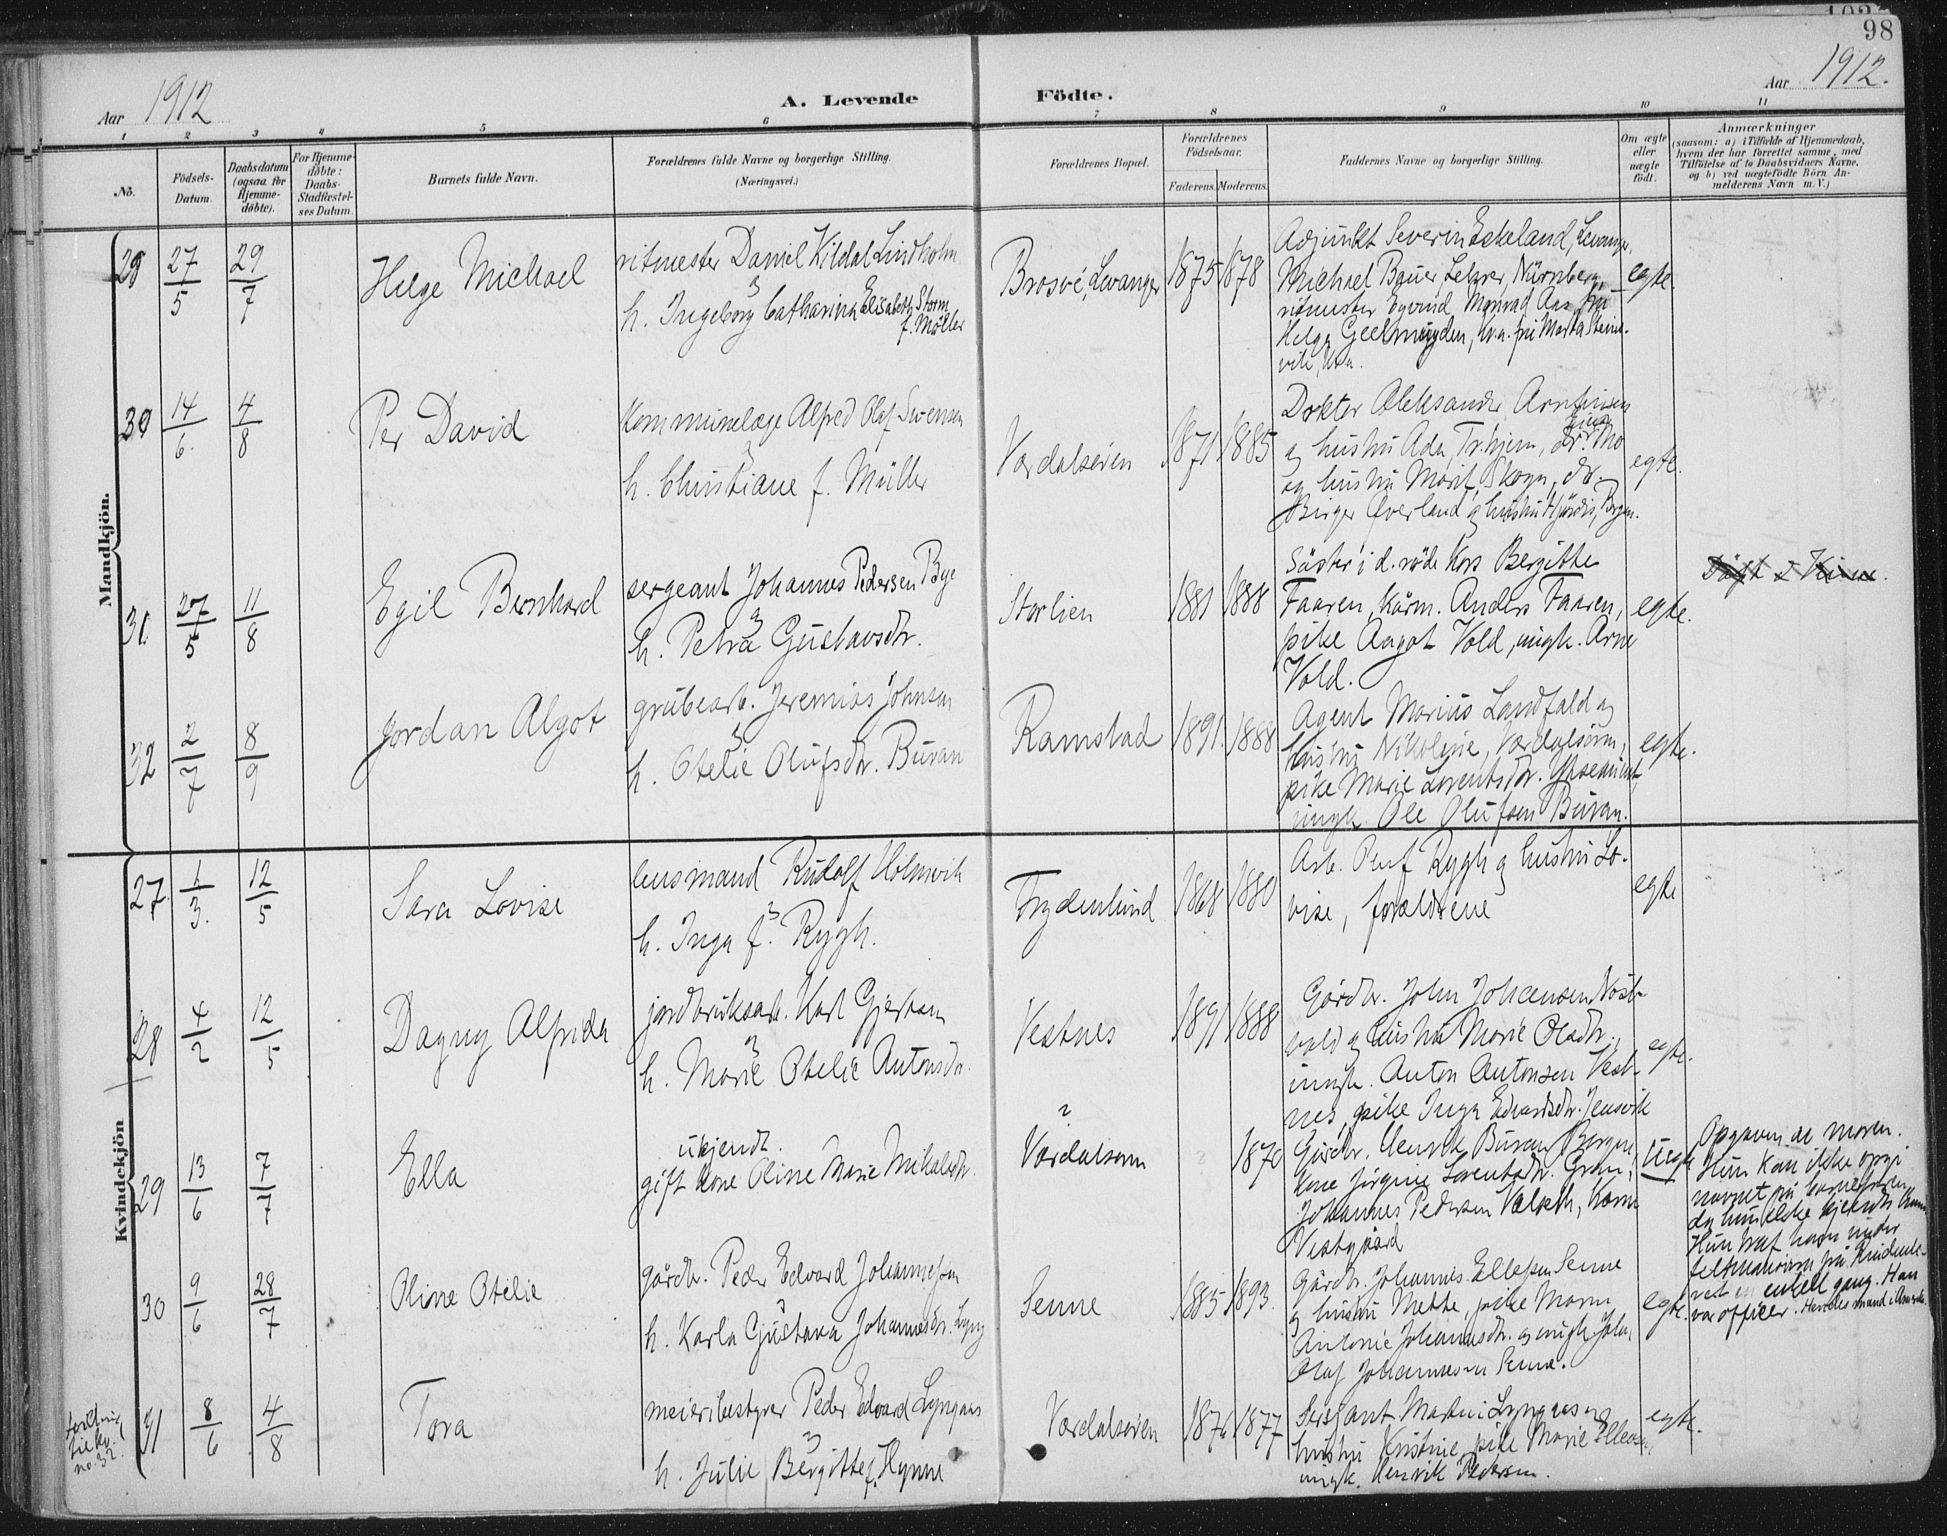 98
Aar 1912
A. Levende Födte.
Aar 1912.
1 2 3 4 5 6 7 8 9 10 11
No.
Födsels-Datum.
Daabsdatum (ogsaa for Hjemmedøbte).
For Hjemmedöbte: Daabs-Stadfæstelses Datum
Barnets fulde Navn.
Forældrenes fulde Navne og borgerlige Stilling. (Næringsvei.)
Forældrenes Bopæl.
Forældrenes Födselsaar.
Faderens. Moderens.
Faddernes Navne og borgerlige Stilling.
Om ægte eller uægte födt.
Anmærkninger
(saasom: a) i Tilfælde af Hjemmedaab, hvem der har forrettet samme, med Tilföielse af to Daabsvidners Navne, og b) ved uægtefödte Börn Anmelderens Navn m. V.)
Mandkjön.
29 27/5 29/7 Helge Michael
ritmester Daniel Kildal Lindholm
h. Ingeborg Catharina Elisabeth Storm
f. Møller
Brosve, Levanger 1875 1878
Adjunkt Severin Eskeland, Levanger,
Michael Bauer Lehrer, Nürnberg,
ritmester Eyvind Monrad Aas, fru
Helga Geelmuyden, Kra. fru Marta Steins-
vik, Kra.
egte.
30 14/6. 4/8 Per David
Kommunelæge Alfred Olaf Svensen
h. Christiane f. Müller
Værdalsøren 1871 1885
Doktor Aleksander Arntzen
og hustru Ada, Tr.hjem, dr. Mo
og hustru Marit, Skogn, dr.
Birger Øverland og hustru Hjørdis, Bergen.
egte.
31. 27/5 11/8 Egil Bernhard
sergeant Johannes Pedersen Bye
h. Petra Gustavsdr.
Storlien 1881 1888
Söster i d. röde Kors Bergitte
Faaren, kårm. Anders Faaren,
pike Aagot Vold, ungk. Arne
Vold.
egte.
32 2/7 8/9 Jordan Algot
grubearb. Jeremias Johnsen
h. Otelie Olufsdr. Buran
Ramstad 1891. 1888
Agent Marius Landfald og
hustru Nikoline, Værdalsøren,
pike Marie Lorentsdr.
ungk. Ole Olufsen Buran.
egte.
Kvindekjön
27. 1/3. 12/5 Sara Lovise
lensmand Rudolf Holmvik
h. Inga f. Rygh.
Frydenlund 1868 1880
Arb. Peref Rygh og hustru Lo-
vise, forældrene
egte
28 4/2 12/5 Dagny Alfrida
jordbruksarb. Karl Gjertsen
h. Marie Otelie Antonsdr.
Vestnes 1891 1888
Gårdbr. John Johansen Nöst-
vold og hustru Marie Olsdr.,
ungk. Anton Antonsen Vest-
nes, pike Inga Edvardsdr. Jensvik
egte.
29 13/6 7/7 Ella
ukjendt.
gift kone Oline Marie Mikalsdr.
?
Værdalsøren 1870
Gårdbr. Henrik Buran, Bergen
kone Jörgine Lorentsdr. Gran,
Johannes Pedersen Valseth,
Vestgård
uegte
Opgaven av moren.
Hun kan ikke opgi
navnet på barnefaren,
da hun ikke kjendte ham
Hun traf ham under
feltmanövren på Rindenle-
ret en enkelt gang. Han
var officer. Hendes mand i Amerika.
30 9/6 28/7 Oline Otelie
gårdbr. Peder Edvard Johannessen
h. Karla Gustava Johannesdr. Lyng
Senne 1885 1893.
Gårdbr. Johannes Ellefsen Senne
og hustru Mette, pike Maren
Antonie Johannesdr. og ungk. Joh.
Olaf Johannessen Senne.
egte.
31 8/6 4/8 Tora
meieribestyrer Peder Edvard Lyngaas
h. Julie Bergitte f. Hynne
Værdalsøren 1876 1877
Sersjant Martin Lyngaas og
hustru Kristine, pike Marie Ellevsen,
ungk. Henrik Pedersen.
egte.
no. 32.